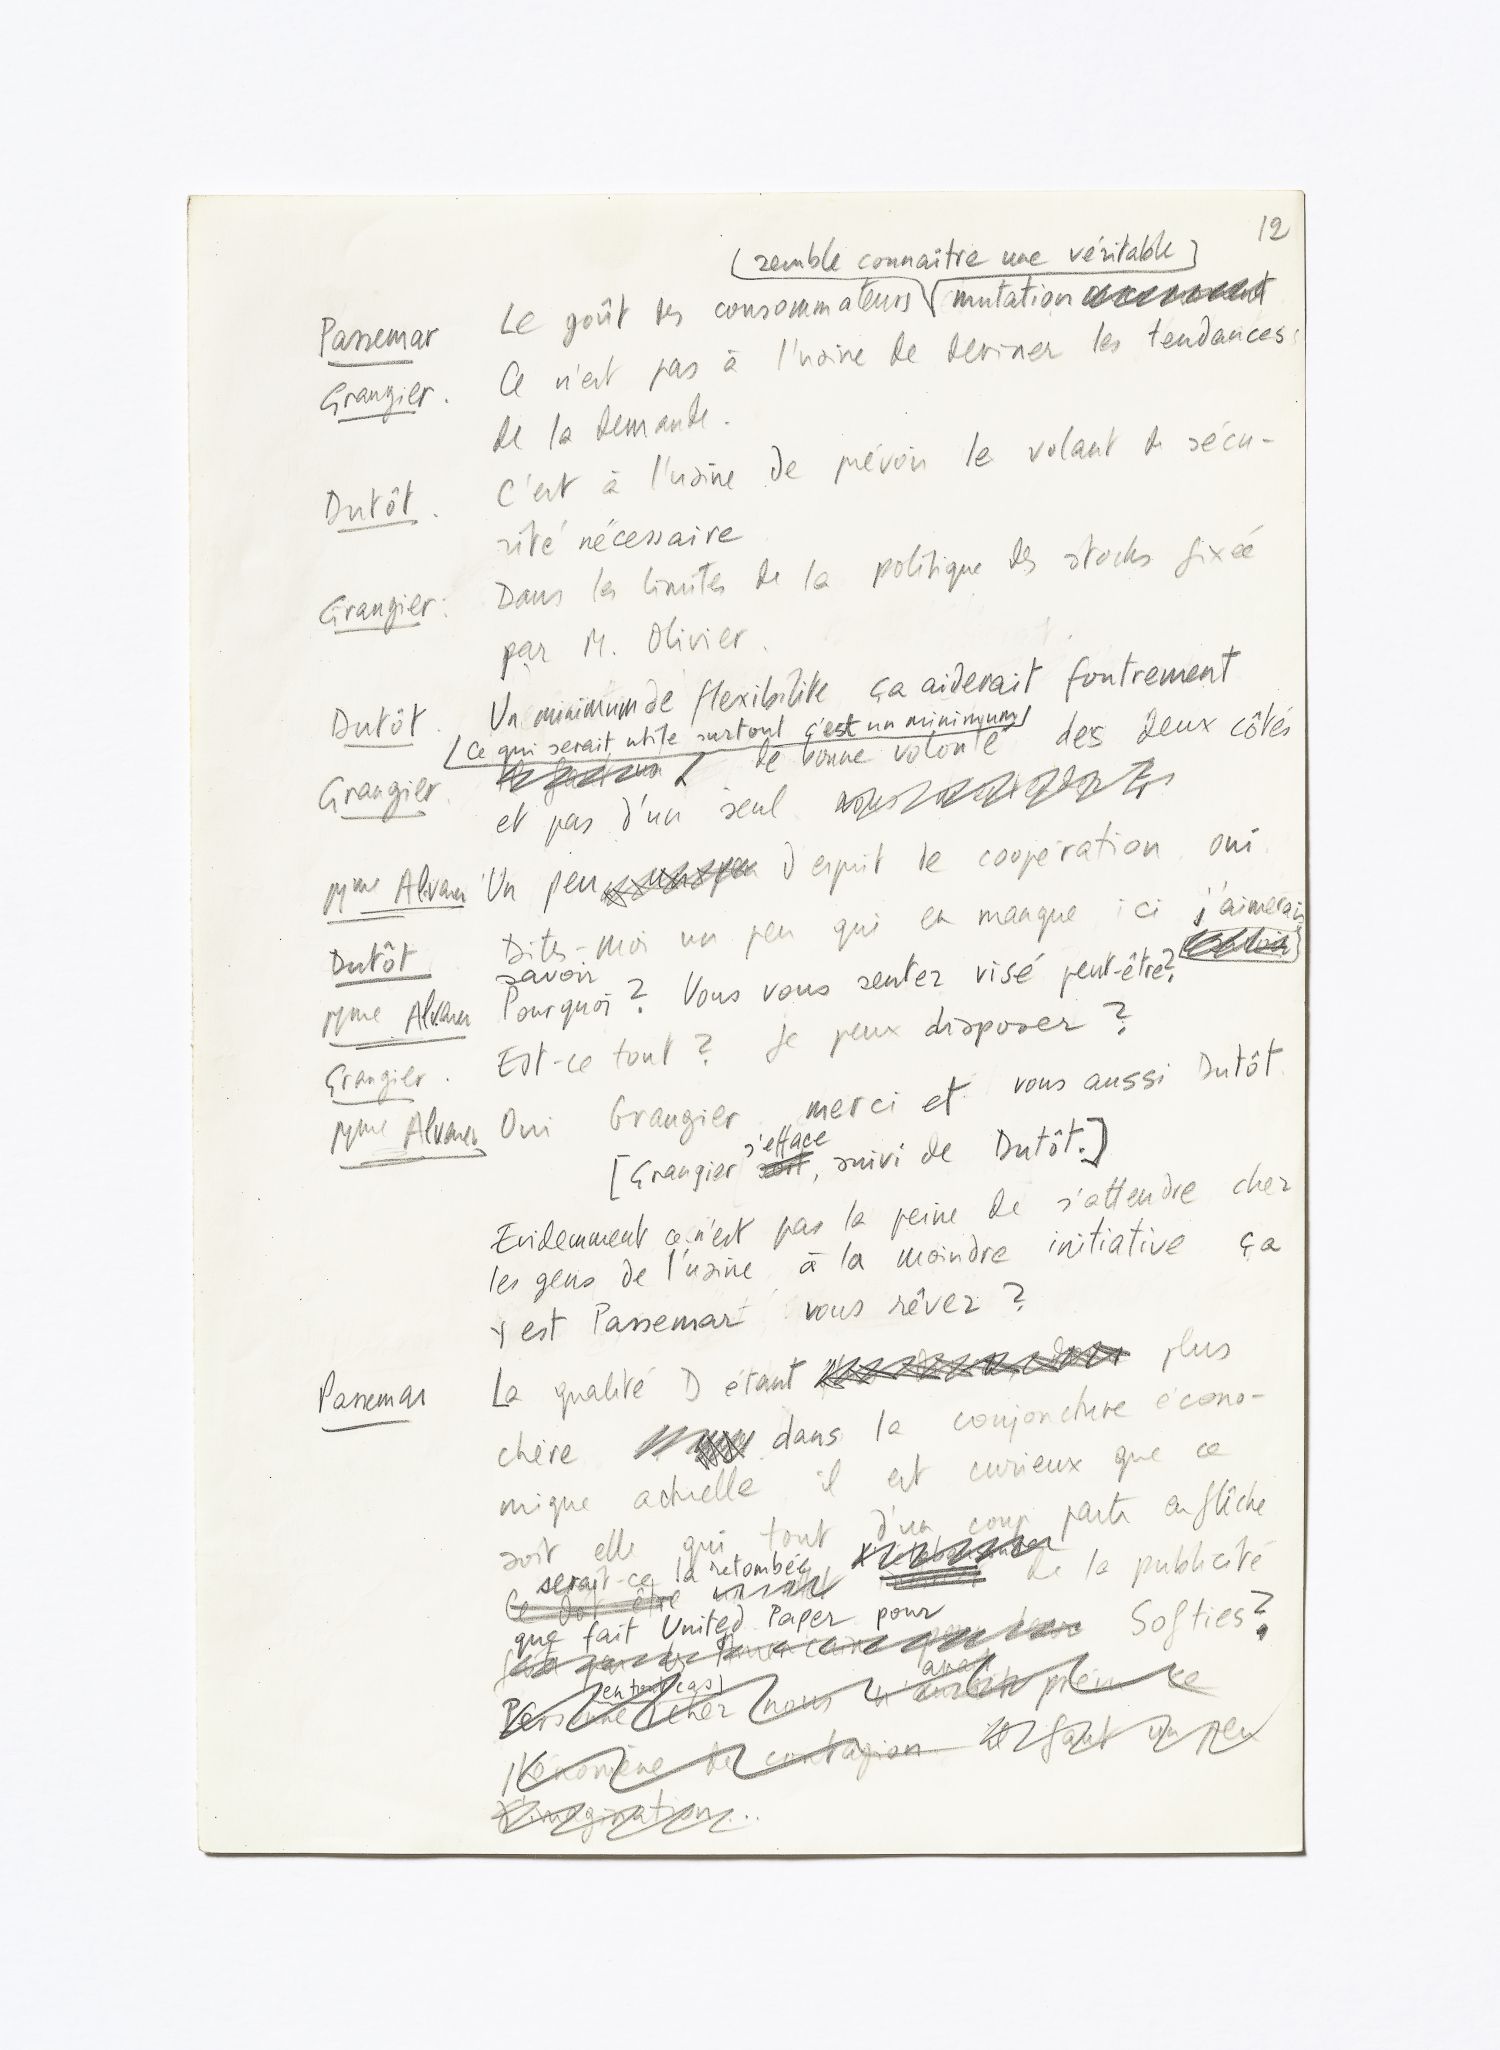 12
(semble connaître une véritable)
Passemar Le goût des consommateurs mutation
Grangier. Ce n'est pas à l'usine de deviner les tendances
de la demande.
Dutôt. C'est à l'usine de prévoir le volant de sécu-
rité nécessaire
Grangier. Dans les limites de la politique des stocks fixée
par M. Olivier.
Dutôt. Un minimum de flexibilité ça aiderait foutrement
(ce qui serait utile surtout c'est un minimum)
Grangier. de bonne volonté des deux côtés
et pas d'un seul
Mme Alvarez Un peu d'esprit de coopération oui
Dutôt Dites-moi un peu qui en manque ici j'aimerais
savoir
Mme Alvarez Pourquoi? Vous vous sentez visé peut-être?
Grangier. Est-ce tout? Je peux disposer?
Mme Alvarez Oui Grangier merci et vous aussi Dutôt
s'efface
[Grangier sort, suivi de Dutôt.]
Evidemment ce n'est pas la peine de s'attendre chez
les gens de l'usine à la moindre initiative ça
y est Passemar vous rêvez?
Passemar La qualité D étant plus
chère dans la conjoncture écono-
mique actuelle il est curieux que ce
soit elle qui tout d'un coup parte en flèche
serait-ce la retombée
Ce doit être de la publicité
que fait United Paper pour
Softies?
(en tout cas) avait
Personne chez nous n'aurait prévu ce
phénomène de contagion Il faut un peu
d'imagination...